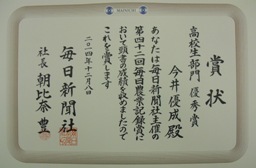 賞状
高校生部門 優秀賞
今井優成殿
あなたは毎日新聞社主催の
第四十二回毎日農業記録賞に
おいて頭書の成績を収めましたので
これを賞します
二〇一四年十二月八日
毎日新聞社
社長 朝比奈豊